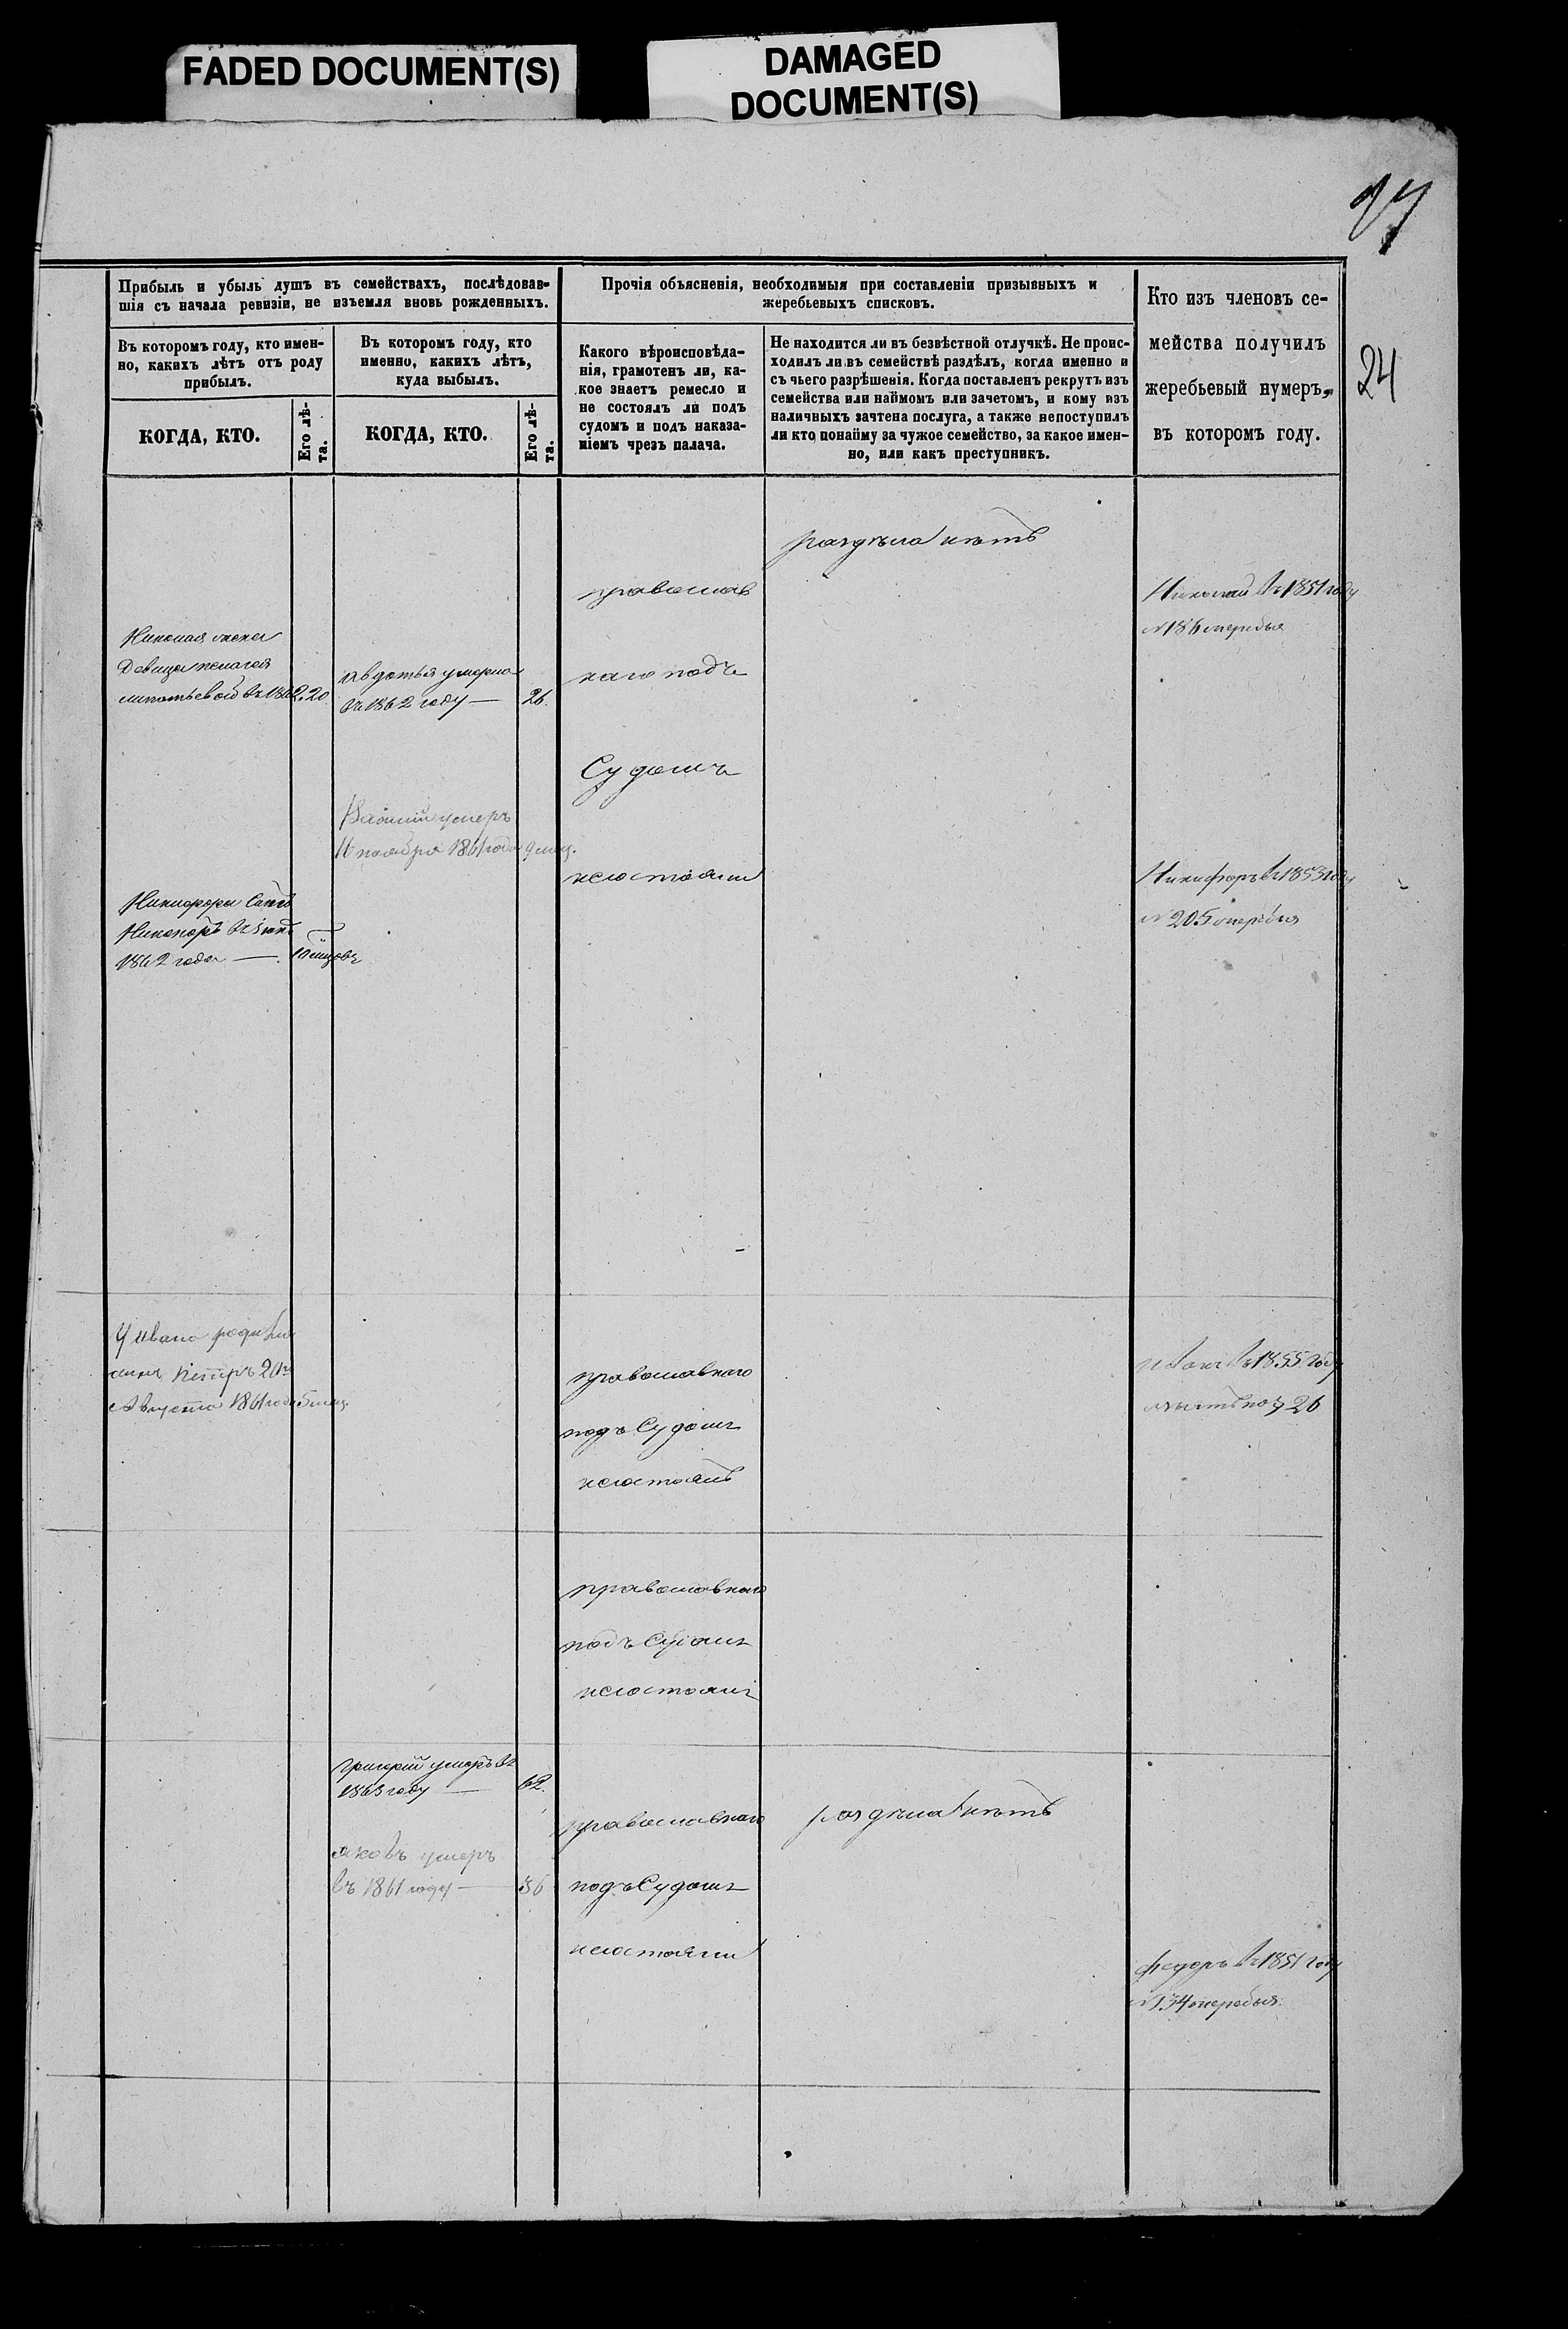 FADED DOCUMENT(S)
DAMAGED
DOCUMENT(S)
27
24
Прибыль и убыль душъ въ семействахъ, послѣдовав-
шія съ начала ревизіи, не изъемля вновь рожденныхъ.
Въ которомъ году, кто имен-
но, какихъ лѣтъ отъ роду
прибылъ.
КОГДА, КТО.
Его лѣ-
та.
Въ которомъ году, кто
именно, какихъ лѣтъ,
куда выбылъ.
КОГДА, КТО.
Его лѣ-
та.
Прочія объясненія, необходимыя при составленіи призывныхъ и
жеребьевыхъ списковъ.
Какого вѣроисповѣда-
нія, грамотенъ ли, ка-
кое знаетъ ремесло и
не состоялъ ли подъ
судомъ и подъ наказа-
ніемъ чрезъ палача.
Не находится ли въ безвѣстной отлучкѣ. Не проис-
ходилъ ли въ семействѣ раздѣлъ, когда именно и
съ чьего разрѣшенія. Когда поставленъ рекрутъ изъ
семейства или наймомъ или зачетомъ, и кому изъ
наличныхъ зачтена послуга, а также непоступилъ
ли кто понайму за чужое семейство, за какое имен-
но, или какъ преступникъ.
Кто изъ членовъ се-
мейства получилъ
жеребьевый нумеръ,
въ которомъ году.
раздѣла нѣтъ
православ
Николай въ 1851 году
№ 186 жеребья
Николая жена
Девица пелагея
въ 1862. 20.
авдотья умерла
въ 1862 году — 26.
наго подъ
Судомъ
умеръ
16 ноября 1861 года 9 мец.
несостояли
Никифоръ въ 1853 году
№ 205 жеребья
Никифора
Никаноръ въ
1862 года —
У ивана родился
сынъ Петръ 20го
Августа 1861 года 5 мец.
православного
подъ Судомъ
несостоялъ
въ 1855 году
26
православного
подъ Судомъ
несостоялъ
григорий умеръ въ
1863 году — 62.
православного
раздѣла нѣтъ
яковъ умеръ
въ 1861 году — 36
подъ Судомъ
несостояли
федоръ въ 1851 году
№ 134 жеребья